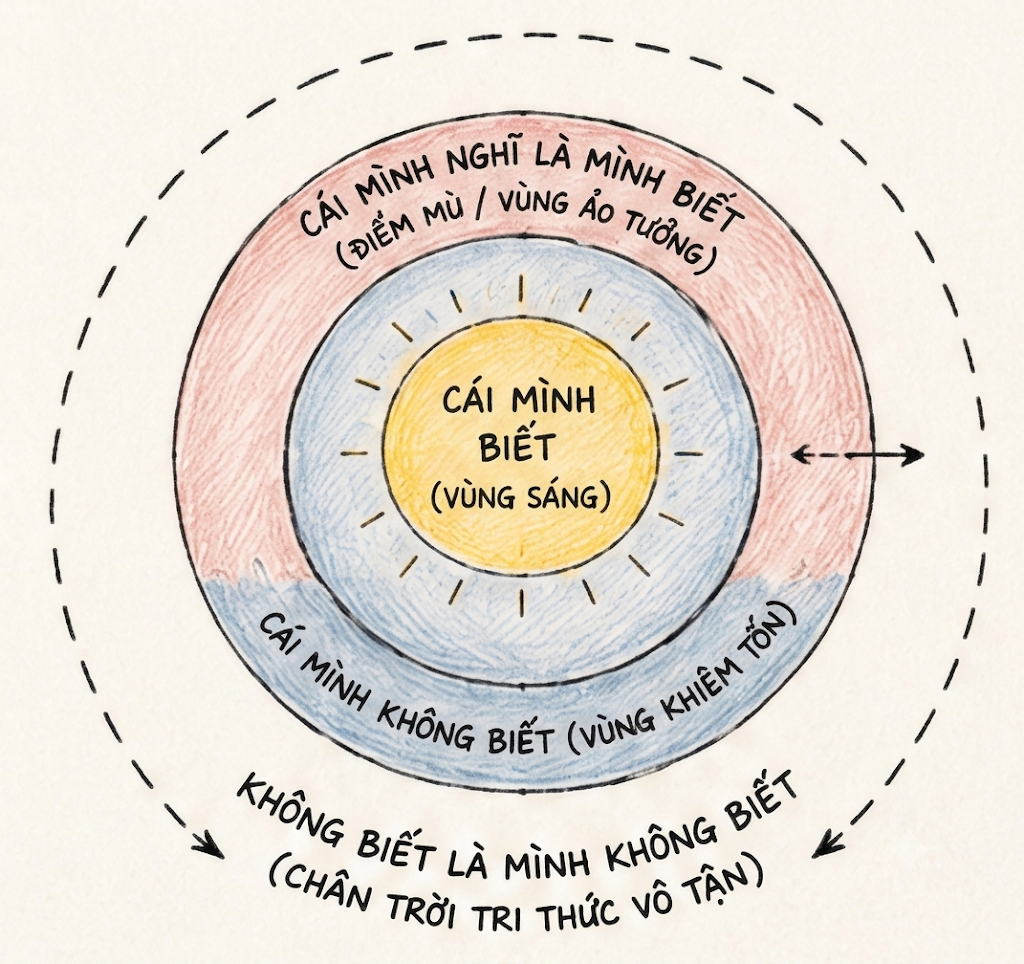 CÁI MÌNH NGHĨ LÀ MÌNH BIẾT
(ĐIỂM MÙ / VÙNG ẢO TƯỞNG)
CÁI MÌNH
BIẾT
(VÙNG SÁNG)
CÁI MÌNH KHÔNG BIẾT (VÙNG KHIÊM TỐN)
KHÔNG BIẾT LÀ MÌNH KHÔNG BIẾT
(CHÂN TRỜI TRI THỨC VÔ TẬN)